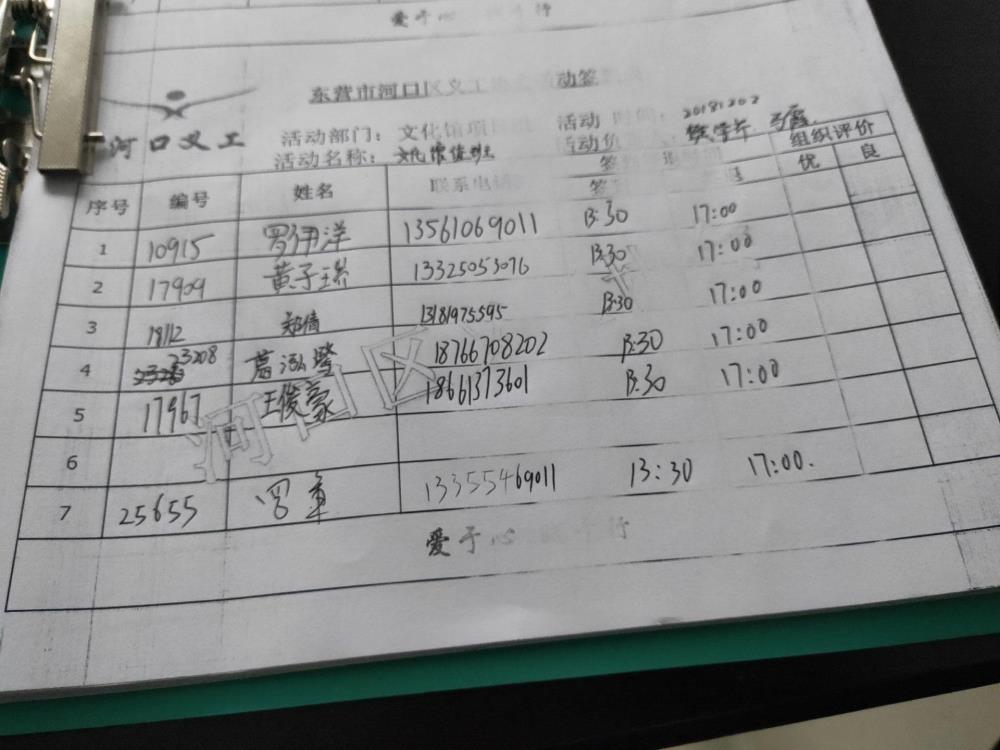 爱于心 行
东营市河口区义工 动签
河口义工
活动部门：文化馆项目 活动 时间：20181202
活动名称：文化馆值班 活动负 人：
组织评价
序号 编号 姓名 联系电话 签 优 良
1 10915 罗伊洋 13561069011 13:30 17:00
2 17909 黄子 13325053076 13:30 17:00
3 18112 郑倩 13181975595 13:30 17:00
4 23208 葛泓 18766708202 13:30 17:00
5 17967 王俊豪 18661373601 13:30 17:00
6
7 25655 罗 13355469011 13:30 17:00.
爱于心 行
河口区